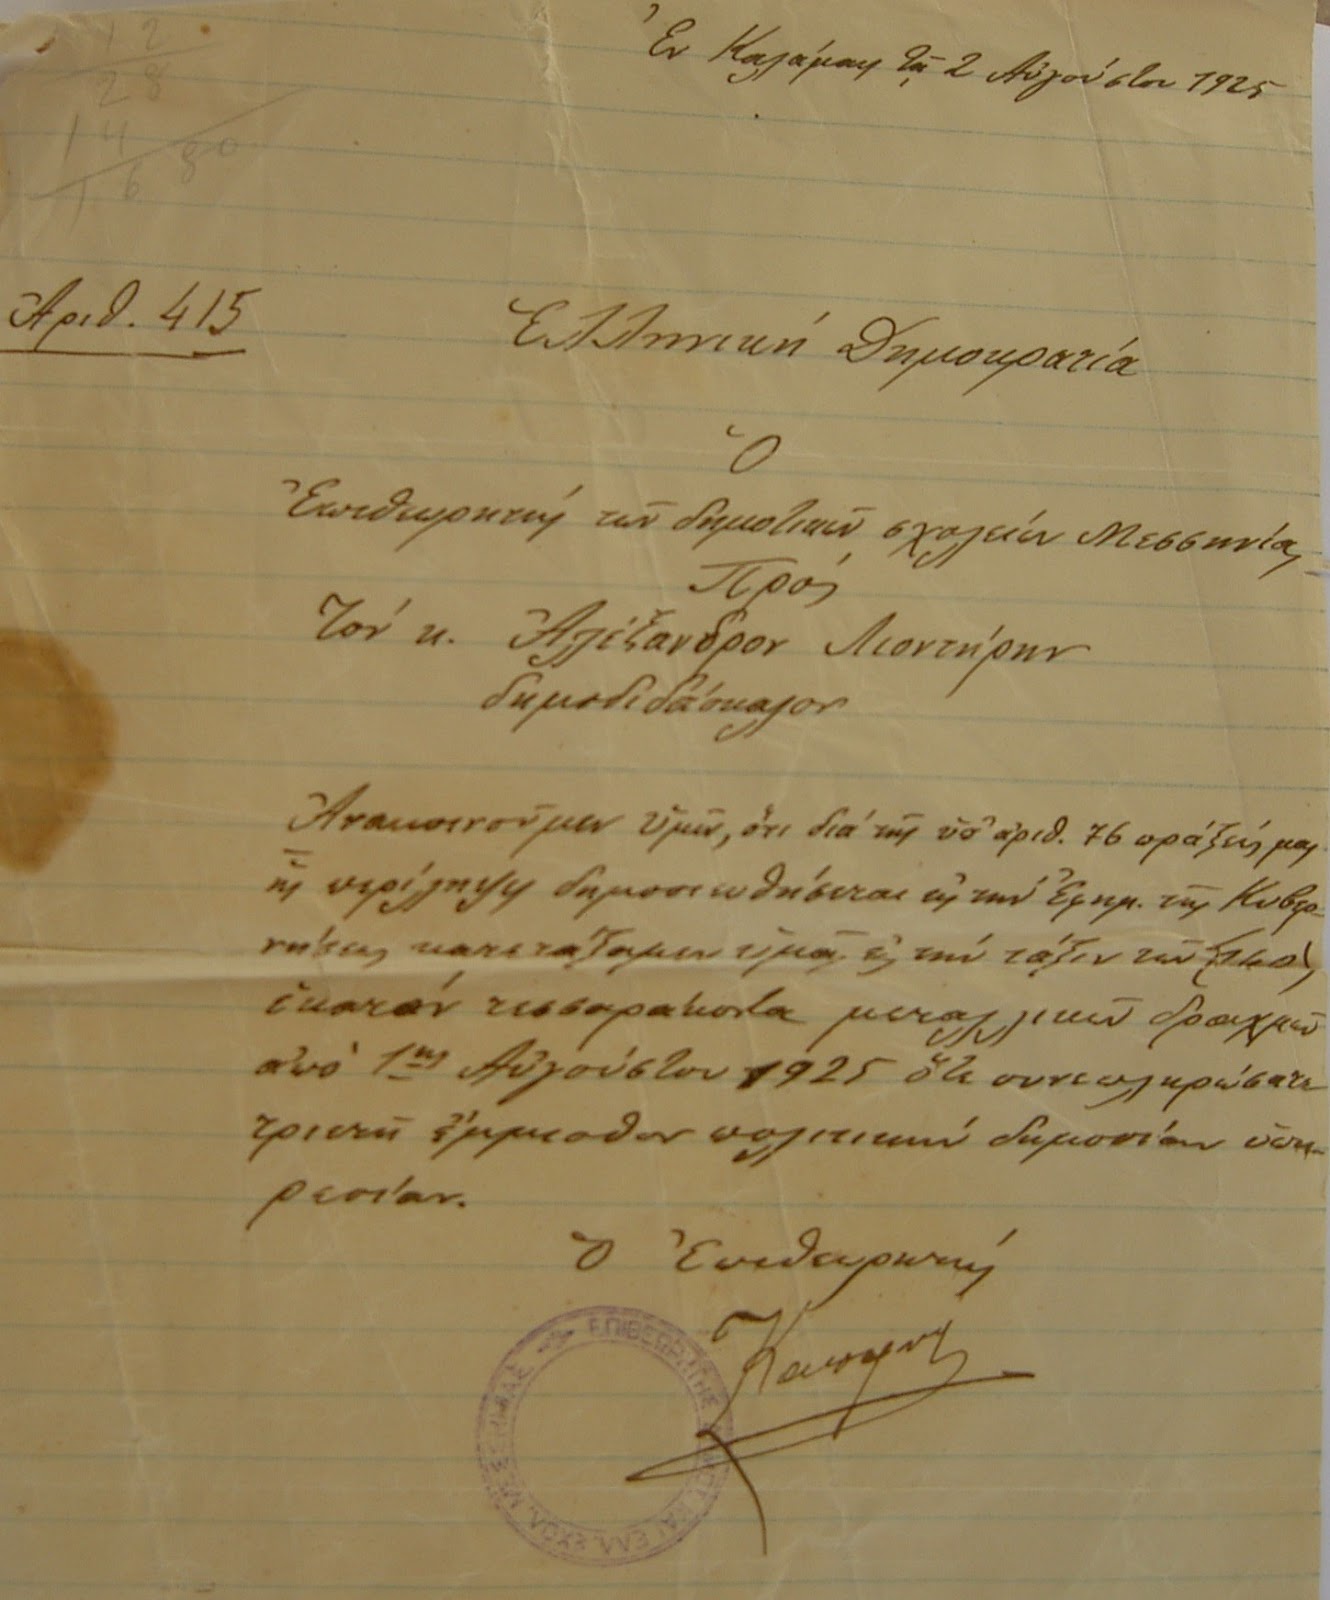 Ἐν Καλάμαις τῇ 2 Αὐγούστου 1925
12
28
14
1680
Ἀριθ. 415
Ἑλληνική Δημοκρατία
Ὁ
Ἐπιθεωρητής τῶν δημοτικῶν σχολείων Μεσσηνίας
Πρός
Τόν κ. Ἀλέξανδρον Λιοντήρην
δημοδιδάσκαλον
Ἀνακοινοῦμεν ὑμῖν, ὅτι διά τῆς ὑπ' ἀριθ. 76 πράξεώς μας
ἧς περίληψις δημοσιευθήσεται εἰς τήν Ἐφημ. τῆς Κυβερ-
νήσεως κατετάξαμεν ὑμᾶς εἰς τήν τάξιν τῶν (140)
ἑκατόν τεσσαράκοντα μεταλλικῶν δραχμῶν
ἀπό 1ης Αὐγούστου 1925 ὅτε συνεπληρώσατε
τριετῆ ἔμμισθον πολιτικήν δημοσίαν ὑπη-
ρεσίαν.
Ὁ Ἐπιθεωρητής
ΕΠΙΘΕΩΡΗΤΗΣ ΔΗΜΟΤ. ΚΑΙ ΕΛΛ. ΣΧΟΛ. ΜΕΣΣΗΝΙΑΣ